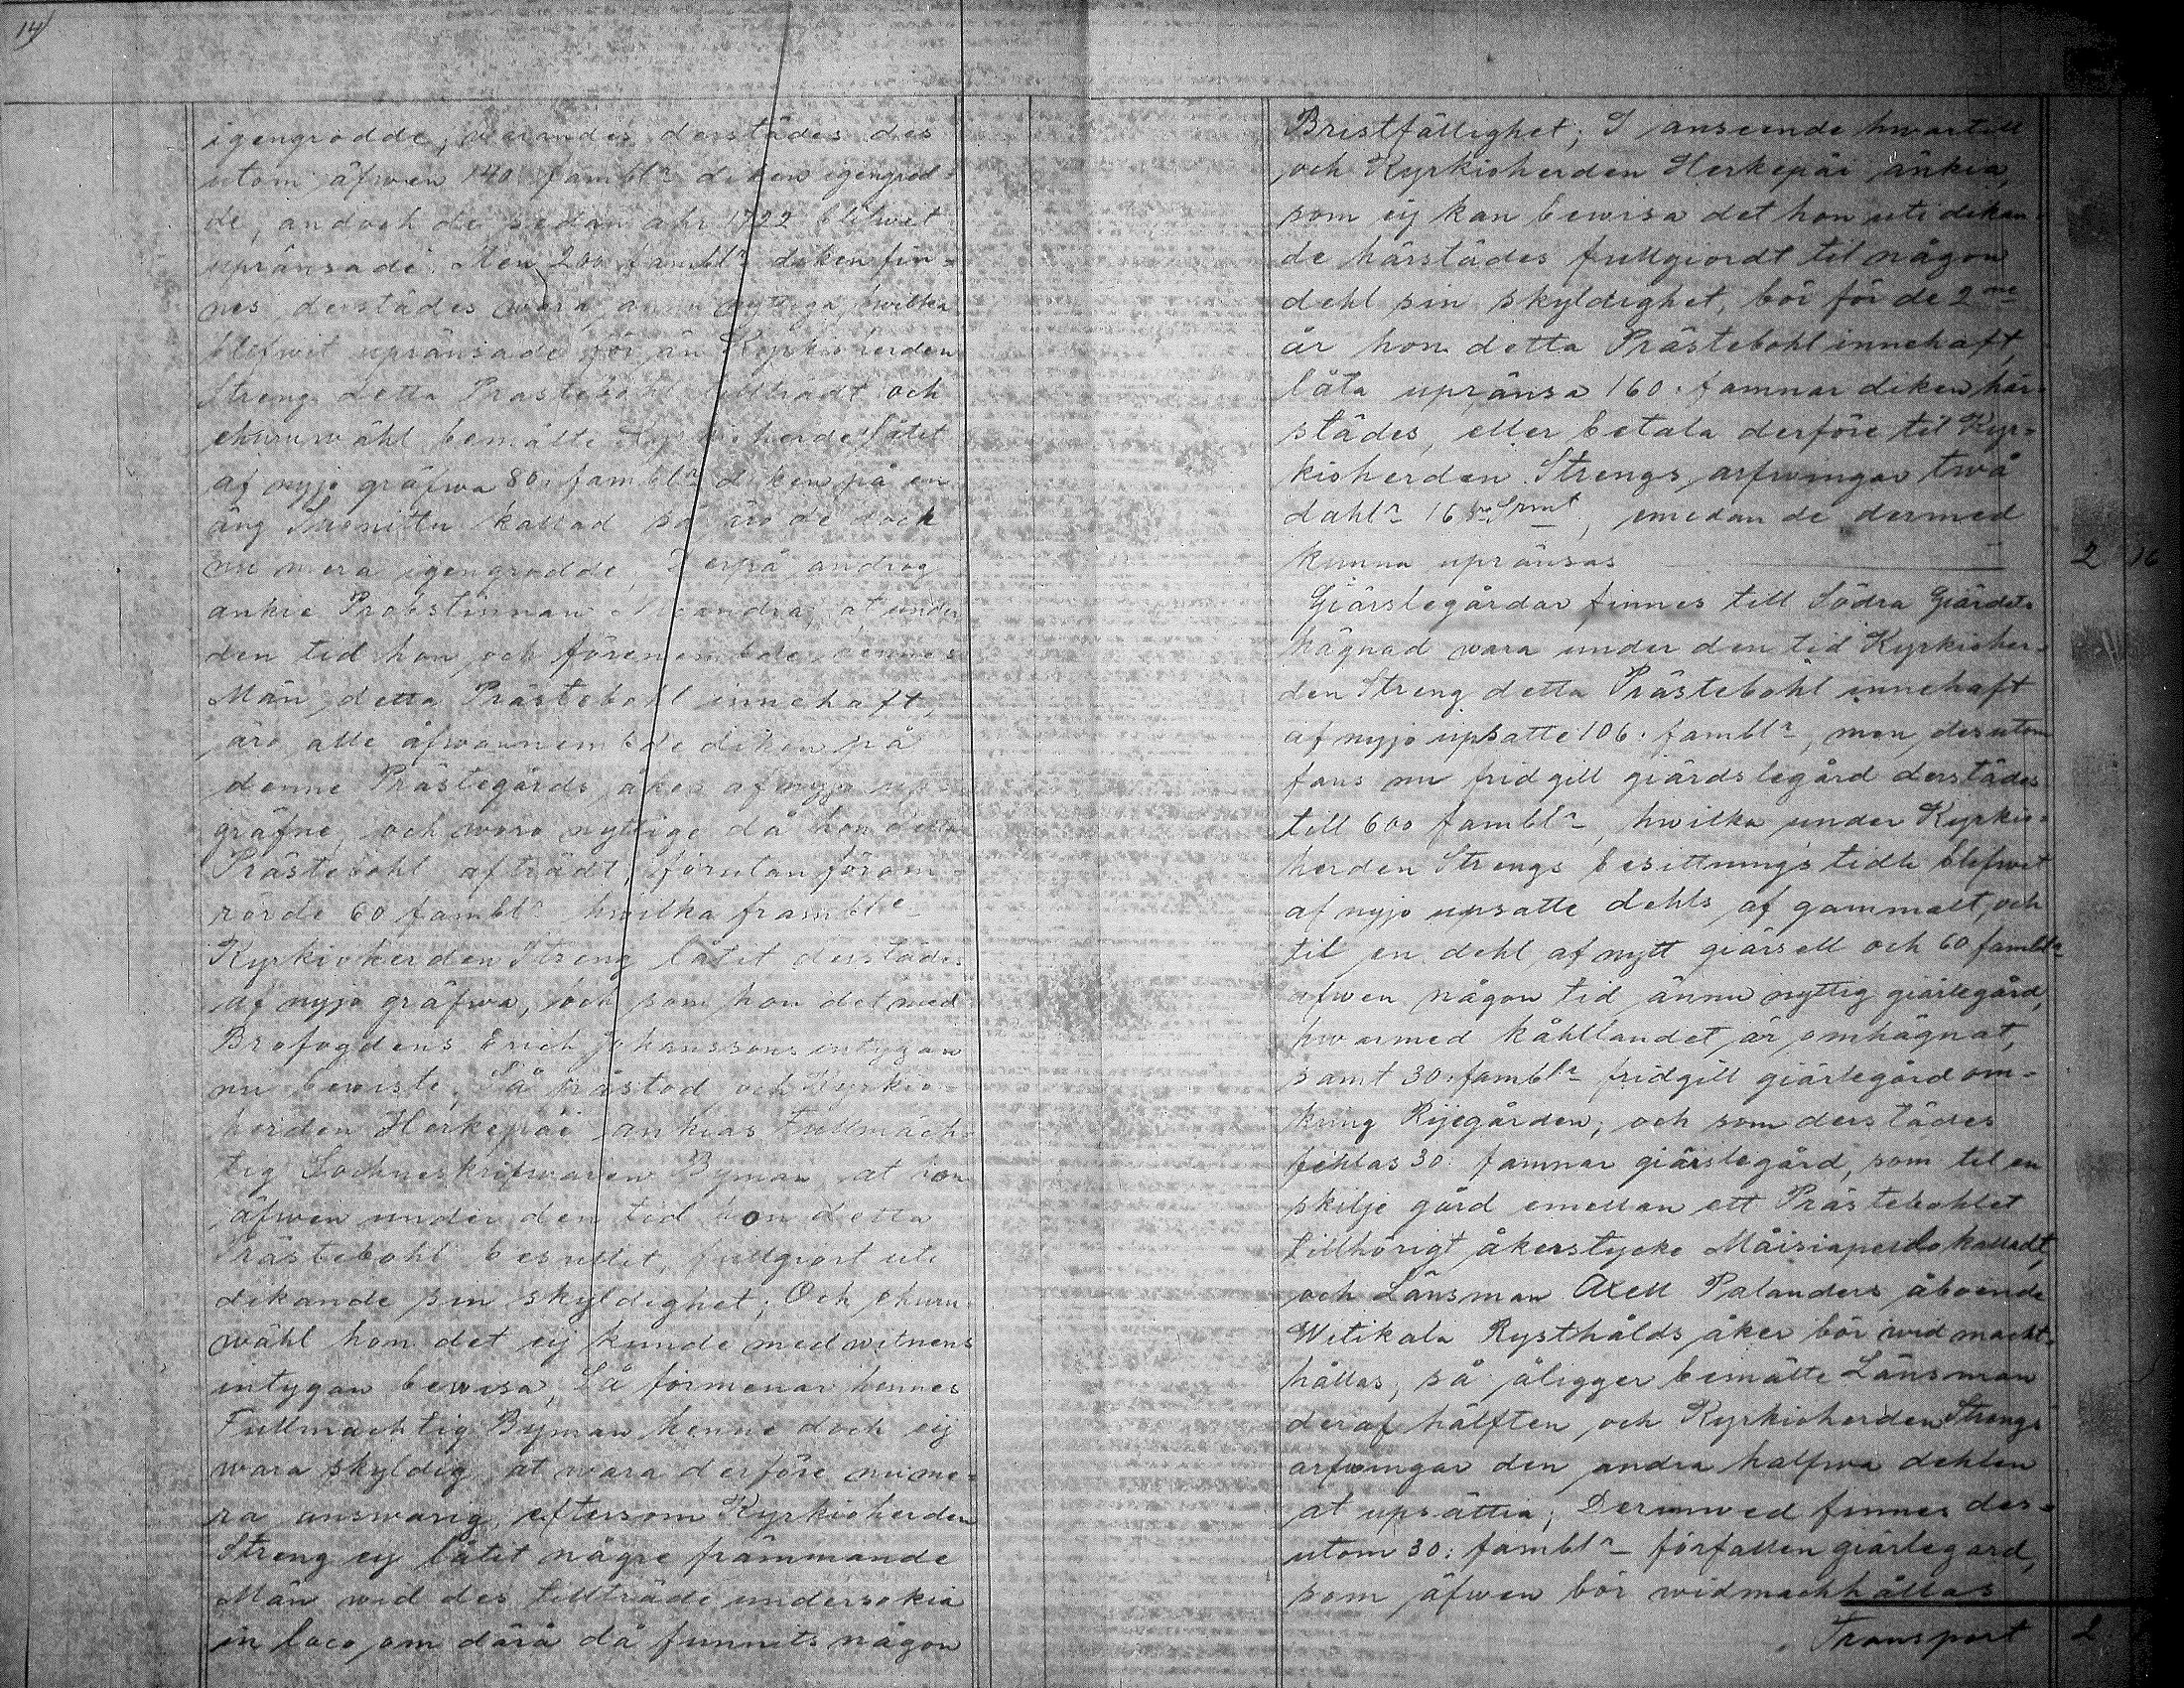 14
igengrodde, warandes derstädes des
utom äfwen 140 famblr diken igengrod-
de, andoch de sedan åhr 1722 blifwit
upränsade. Men 200 famblr diken fin-
nes derstädes wara ännu nyttiga, hwilka
blifwit upränsade för än Kyrkioherden
Streng detta Prästebohl tillträdt och
ehuruwähl bemälte Kyrkioherde låtit
af nyjo gräfwa 80. famblr diken på en
äng kallad så äro de doch
nu mera igengrodde, Derpå androg
änkie Probstinnan at under
den tid hon och förenembde hennes
Män detta Prästebohl innehaft,
äro alle åfwannembde diken på
denne Prästegårds åker af nyjo up-
gräfne, och woro nyttige då hon detta
Prästebohl afträdt, förutan förom-
rörde 60 famblr hwilka framble
Kyrkioherden Streng låtit derstädes
af nyjo gräfwa, och som hon det med
Brofogdens Erich Johanssons intygan
nu bewiste, Så påstod och Kyrkio-
herden Herkepæi änkias Fullmäch-
tig Sochneskrifwaren Byman at hon
äfwen under den tid hon detta
Prästebohl besuttit, fullgiort uti
dikande sin skyldighet; Och ehuru-
wähl hon det ej kunde med witnens
intygan bewisa, Så förmenar hennes
Fullmächtig Byman henne doch eij
wara skyldig at wara derföre nume-
ra answarig, eftersom Kyrkioherden
Streng ej låtit någre främmande
Män wid des tillträde undersökia
in loco om därå då funnits någon
Bristfällighet; I anseende hwartill
och Kyrkioherden Herkepæi änkia,
som eij kan bewisa det hon uti dikan-
de härstädes fullgiordt til någon
dehl sin skyldighet, bör för de 2ne
år hon detta Prästebohl innehaft,
låta upränsa 160. famnar diken här-
städes, eller betala derföre til Kyr-
kioherden Strengs arfwingar twå
dahlr 16 Srmt, emedan de dermed
kunna upränsas 2 16
Giärslegårdar finnes till Södra Giärdets
hägnad wara under den tid Kyrkioher-
den Streng detta Prästebohl innehaft
af nyjo upsatte 106. famblr, men desutom
fans nu fridgill giärdslegård derstädes
till 600 famblr, hwilka under Kyrkio-
herden Strengs besittnings tidh blifwit
af nyjo upsatte dehls af gammalt, och
til en dehl af nytt giärsell och 60 famblr
äfwen någon tid ännu nyttig giärlegård,
hwarmed kåhllandet är omhägnat,
samt 30. famblr fridgill giärlegård om-
kring Rijegården, och som derstädes
fehlas 30: famnar giärslegård, som til en
skilje gård emellan ett Prästebohlet
tillhörigt åkerstycke Mäisiapeldo kalladt,
och Länsman Axell Palanders åboende
Witikala Rysthålds åker bör wid macht-
hållas, så åligger bemälte Länsman
deraf hälften och Kyrkioherden Strengs
arfwingar den andra halfwa dehlen
at upsättia; Derinwed finnes des-
utom 30: famblr förfallen giärlegård,
som äfwen bör widmachhållas
Transport 2